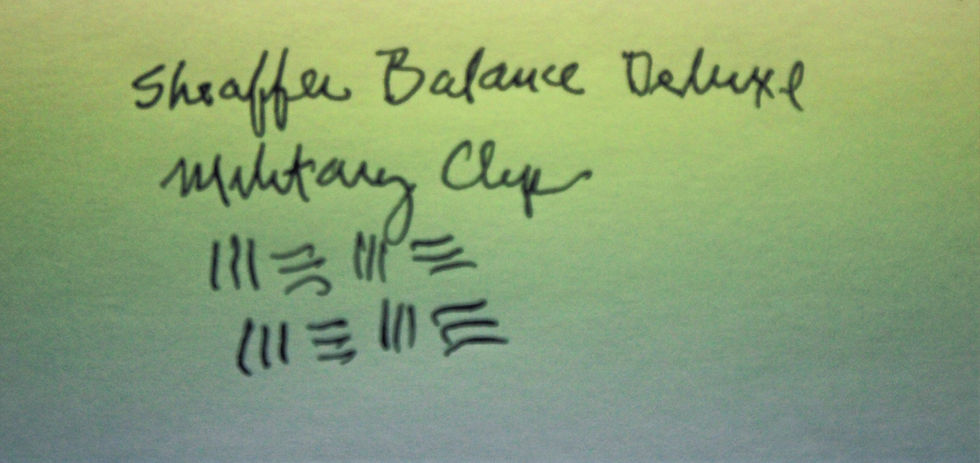 Sheaffer Balance Deluxe
Military Clip